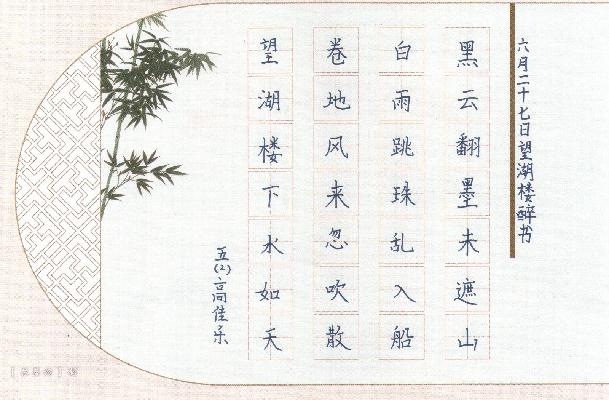 六月二十七日望湖楼醉书
黑云翻墨未遮山
白雨跳珠乱入船
卷地风来忽吹散
望湖楼下水如天
五(2)高佳乐